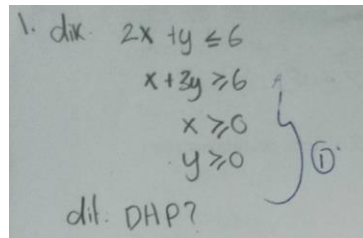 1. dik. 2x + y ≤ 6
x + 3y ≥ 6
x ≥ 0
y ≥ 0
①
dit. DHP?